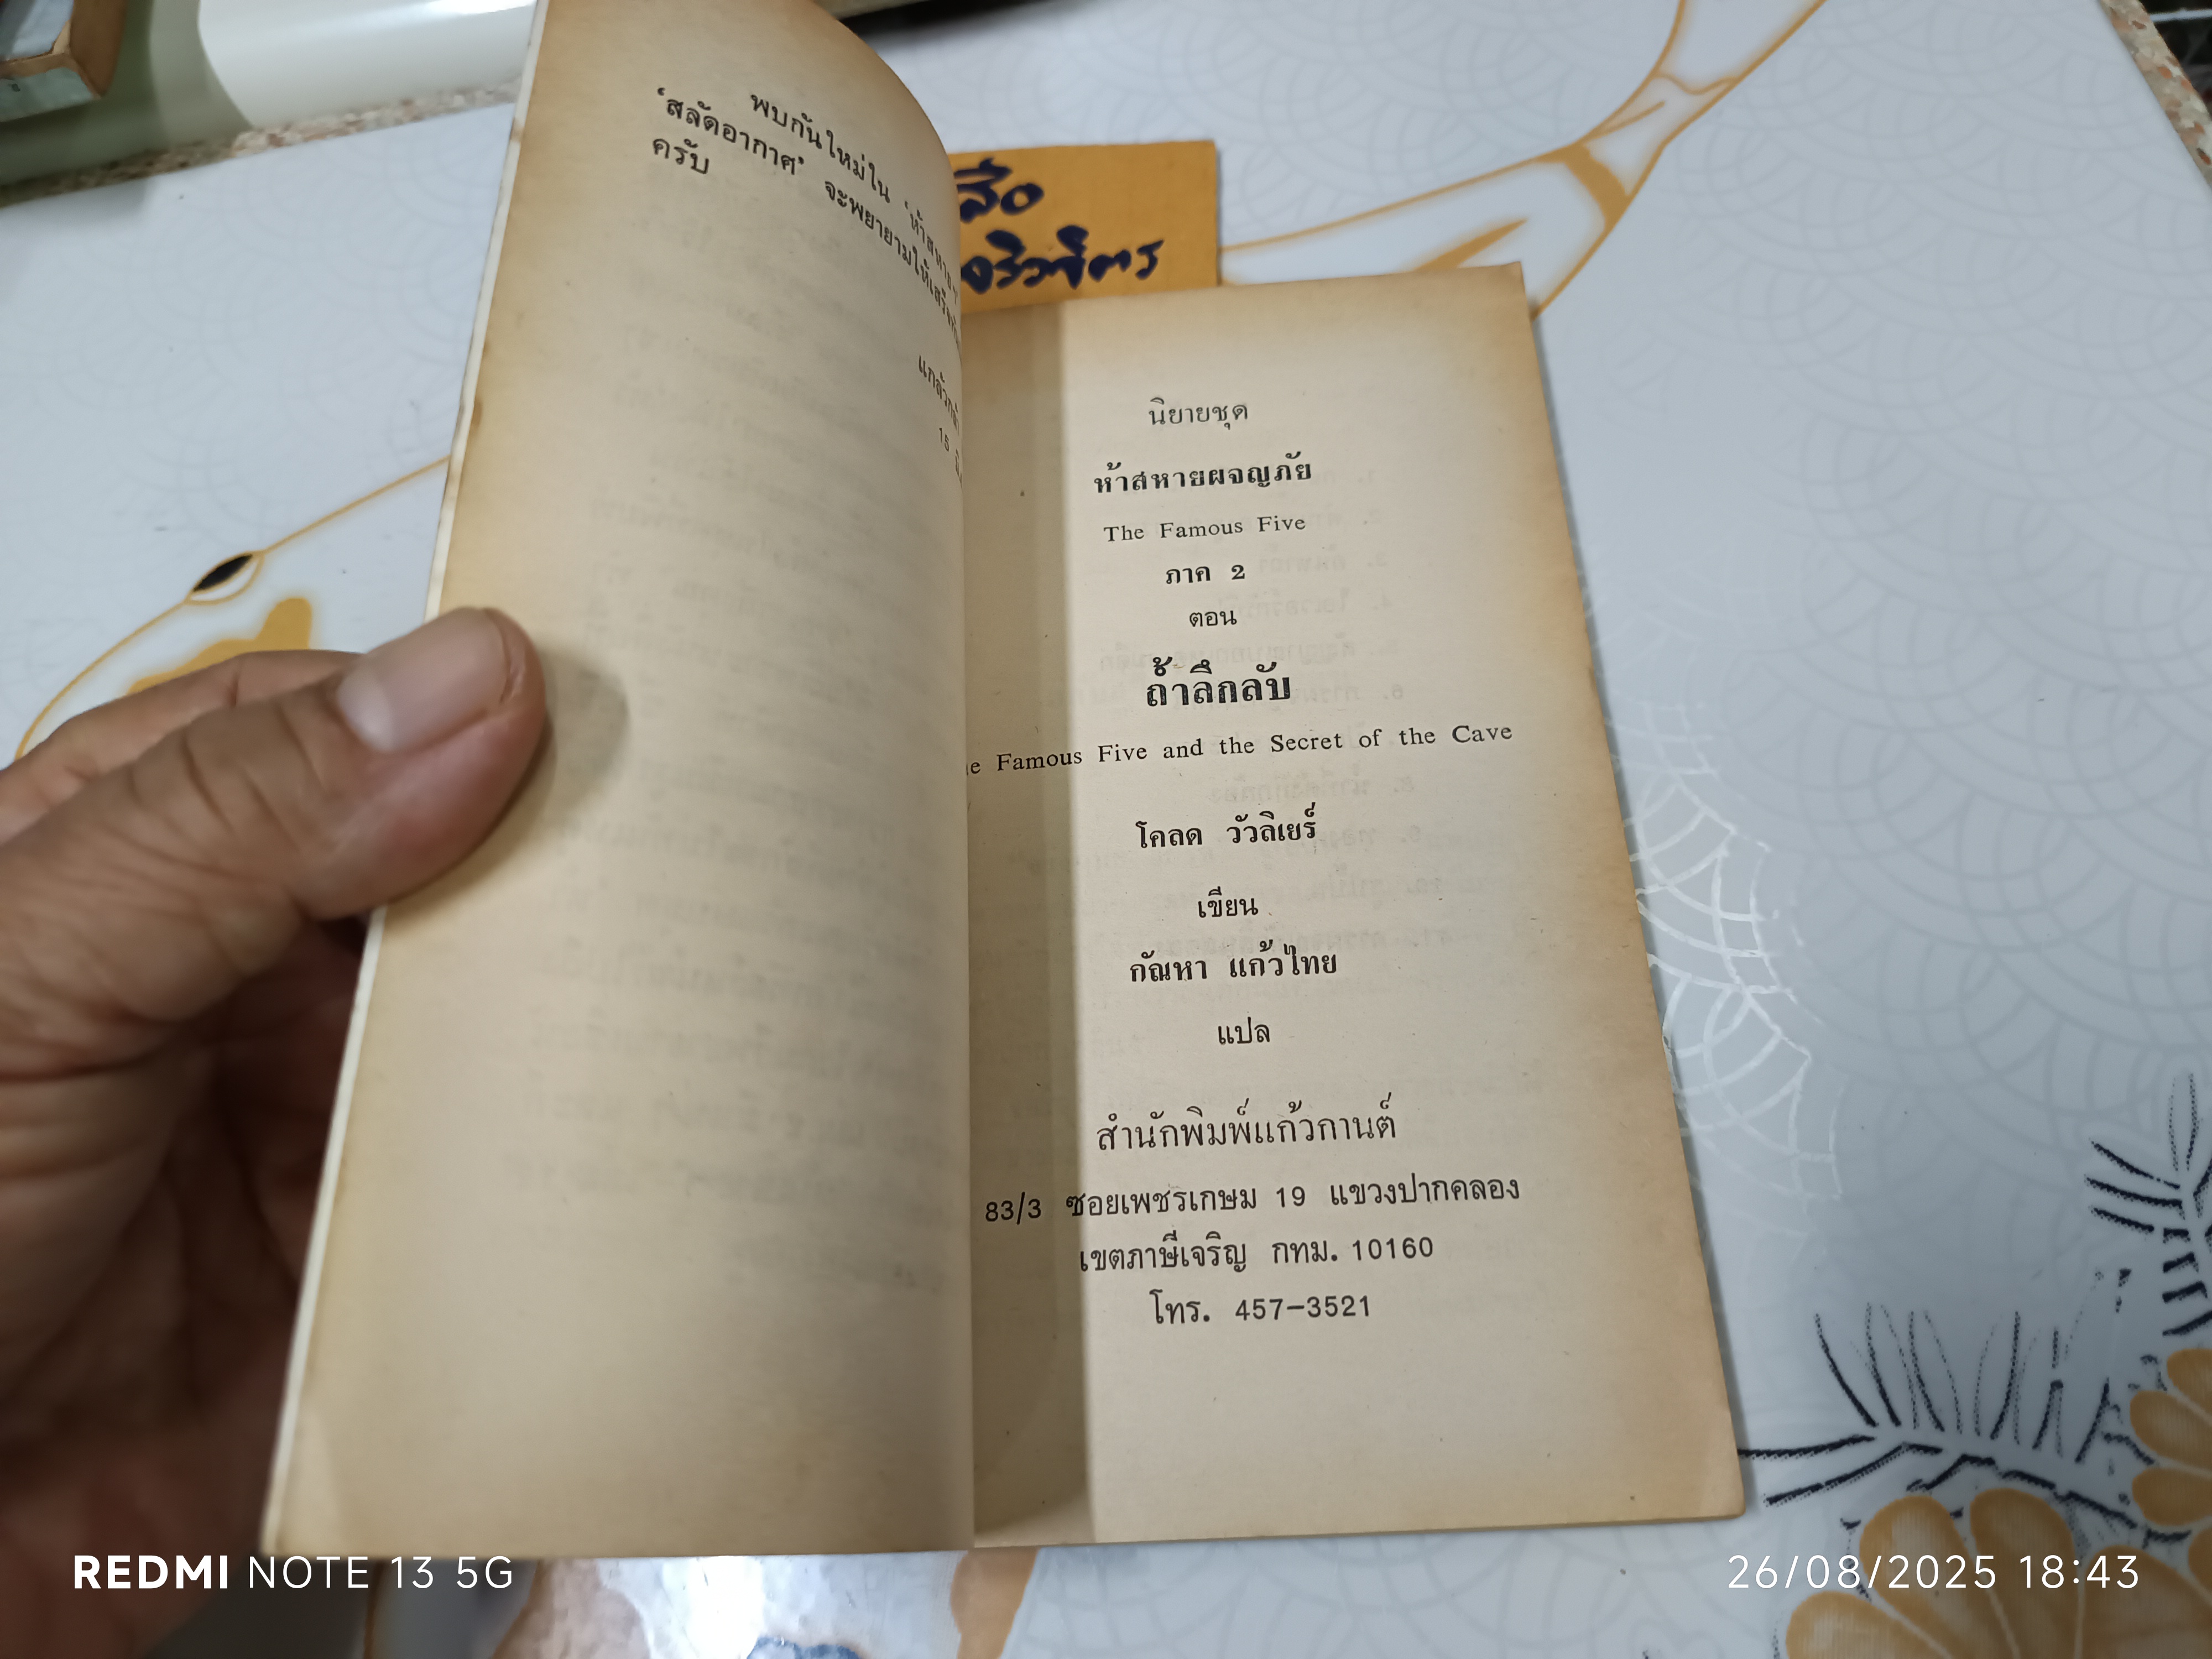 พบกันใหม่ใน 'ห้าสหายฯ
'สลัดอากาศ' จะพยายามให้เสร็จทัน
ครับ
แกล้วกล้า
15
สือ
นิยายชุด
ห้าสหายผจญภัย
The Famous Five
ภาค 2
ตอน
ถ้ำลึกลับ
Famous Five and the Secret of the Cave
โคลด วัวลิเยร์
เขียน
กัณหา แก้วไทย
แปล
สำนักพิมพ์แก้วกานต์
83/3 ซอยเพชรเกษม 19 แขวงปากคลอง
เขตภาษีเจริญ กทม. 10160
โทร. 457-3521
REDMI NOTE 13 5G
26/08/2025 18:43